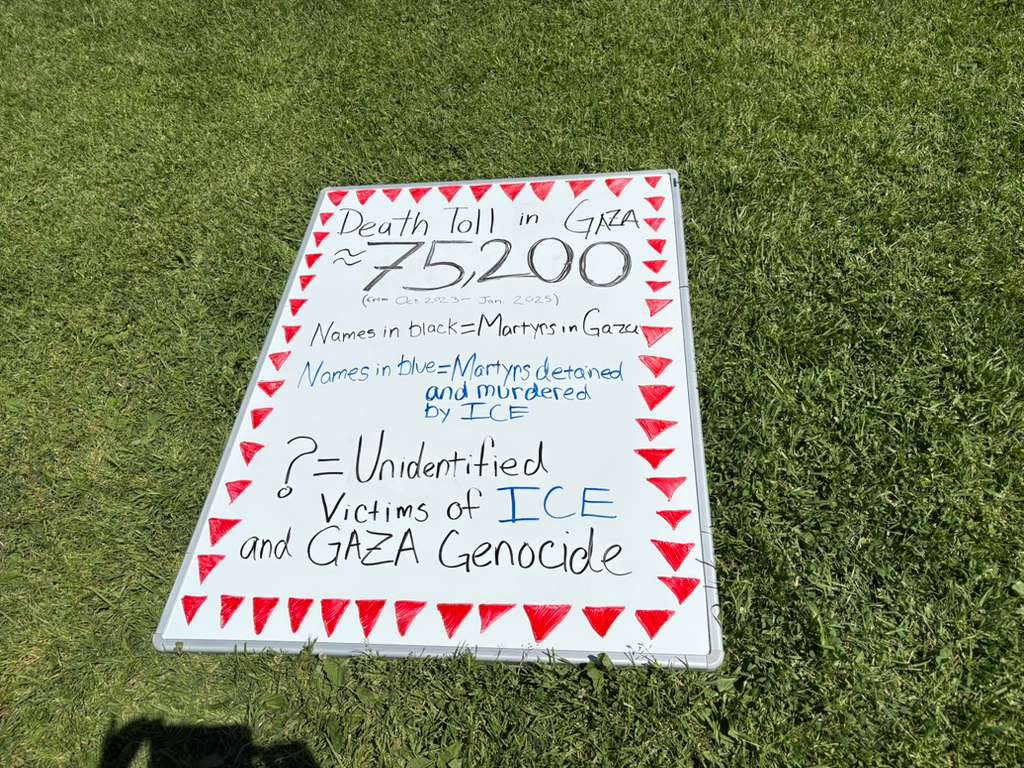 Death Toll in GAZA
≈ 75,200
(from Oct 2023 - Jan. 2025)
Names in black = Martyrs in Gaza
Names in blue = Martyrs detained
and murdered
by ICE
? = Unidentified
Victims of ICE
and GAZA Genocide